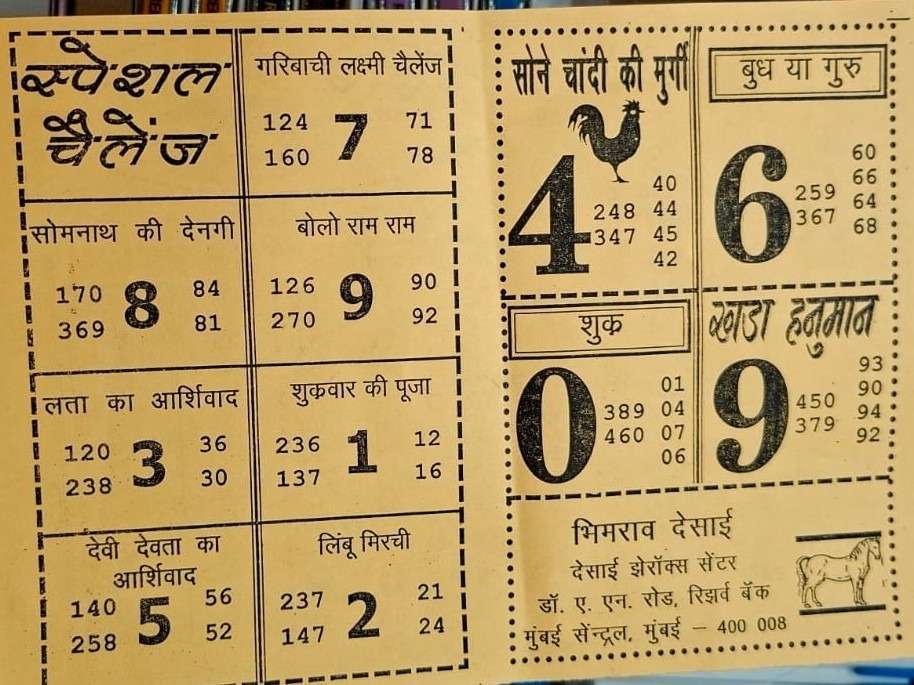 स्पेशल
चैलेंज
गरिबाची लक्ष्मी चैलेंज
124 7 71
160 78
सोमनाथ की देनगी
170 8 84
369 81
बोलो राम राम
126 9 90
270 92
लता का आर्शिवाद
120 3 36
238 30
शुकवार की पूजा
236 1 12
137 16
देवी देवता का
आर्शिवाद
140 5 56
258 52
लिंबू मिरची
237 2 21
147 24
सोने चांदी की मुर्गी
4
40
248 44
347 45
42
बुध या गुरु
6
60
259 66
367 64
68
शुक
0
01
389 04
460 07
06
खडा हनुमान
9
93
450 90
379 94
92
भिमराव देसाई
देसाई झेरॉक्स सेंटर
डॉ. ए. एन. रोड, रिझर्व बॅक
मुंबई सेंन्ट्रल, मुंबई – 400 008